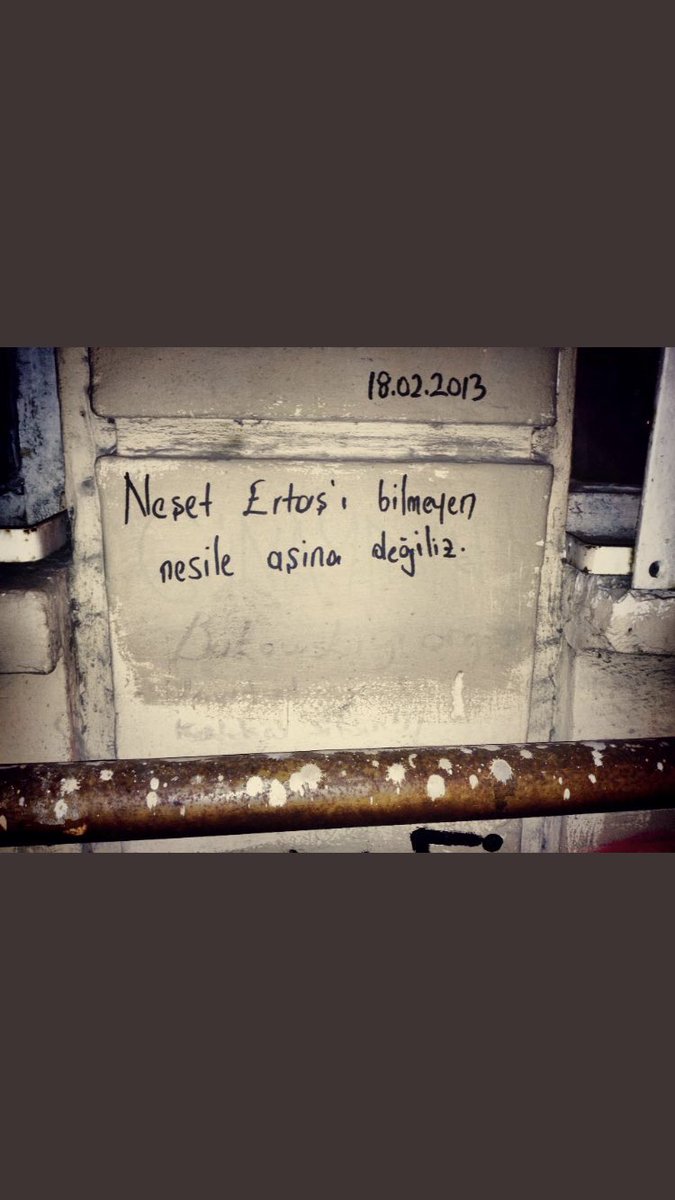 18.02.2013
Neşet Ertaş'ı bilmeyen
nesile aşina değiliz.
Bukowski